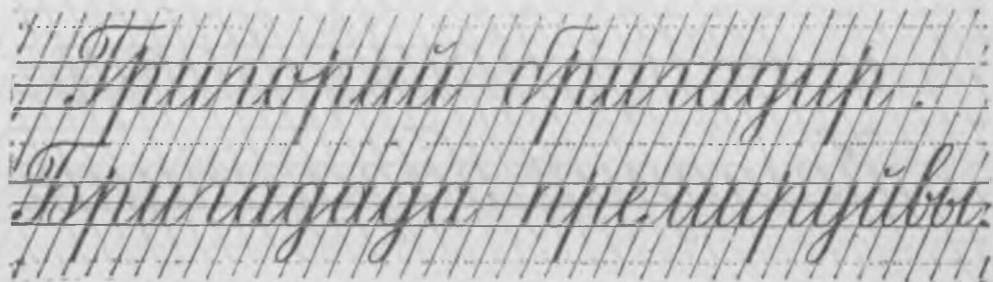 Григорий бригадир.
Бригадида премируйвы.